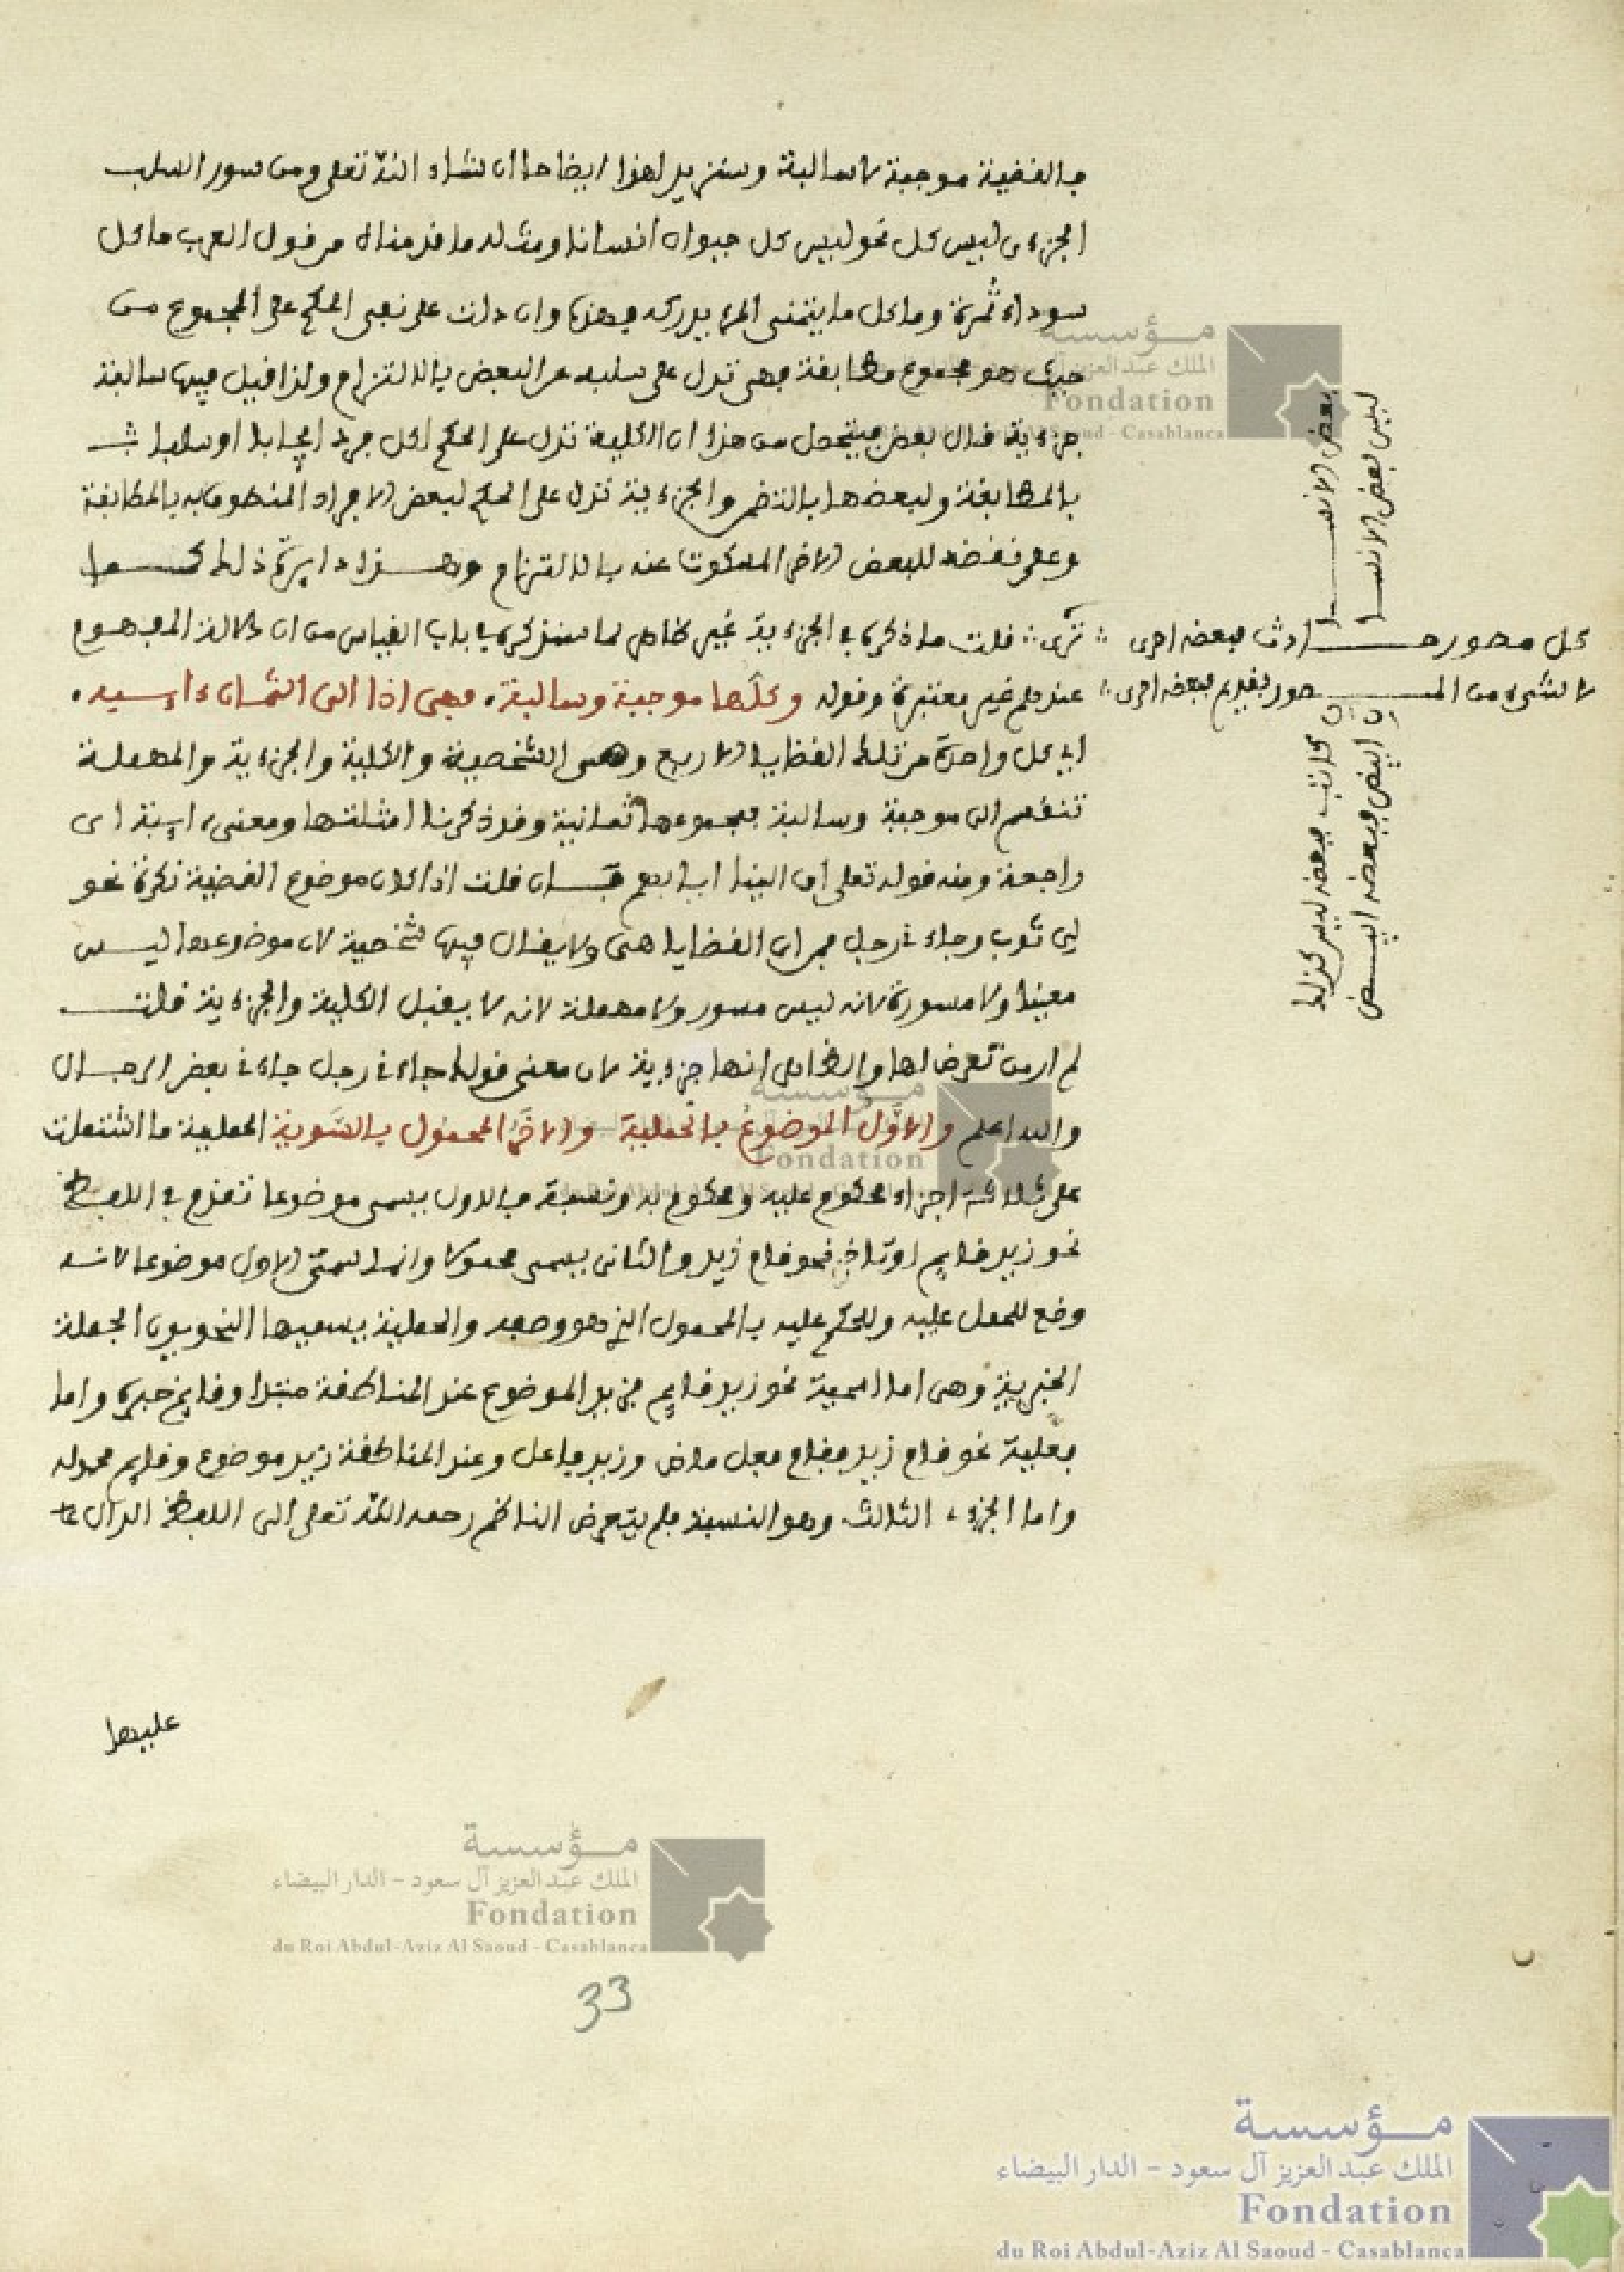 فالقضية موجبة لا سالبة وسنزيد لهذا ايضاحا ان شاء الله تعلى ومن سور السلب
الجزءى ليس كل نحو ليس كل حيوان انسانا ومثله ما قدمناه من قول العرب ما كل
سوداء ثمرة وما كل ما يتمنى المرء يدركه فهذه وان دلت على نفي الحكم على المجموع من
حيث هو مجموع مطابقة فهى تدل على سلبه عن البعض بالالتزام ولذا قيل فيها سالبة
جزءية قال بعض فيتحصل من هذا ان الكلية تدل على الحكم لكل فرد ايجابا او سلبا
بالمطابقة ولبعضها بالتضمن والجزءية تدل على الحكم لبعض الافراد المنطوق به بالمطابقة
وعلى نقضه للبعض المسكوت عنه بالالتزام وهذا دايرة ذلك كما
ترى قلت ما ذكره في الجزءية غير ظاهر لما سنذكره في باب القياس من ان دلالة المفهوم
عندهم غير معتبرة وقوله وكلها موجبة وسالبة. فهى اذا الى الثمان ءايسة.
اي كل واحدة من تلك القضايا الاربع وهى الشخصية والكلية والجزءية والمهملة
تنقسم الى موجبة وسالبة فمجموعها ثمانية وقد ذكرنا امثلتها ومعنى ءايبة اى
راجعة ومنه قوله تعلى ان الينا ايابهم فان قلت اذا كان موضوع القضية نكرة نحو
لي ثوب وجاءني رجل فمن اي القضايا هى ولا يقال فيها شخصية لان موضوعها ليس
معينا ولا مسورة لانه ليس مسور ولا مهملة لانه لا يقبل الكلية والجزءية قلت
لم ار من تعرض لها والظاهر انها جزءية لان معنى قولك جاءني رجل جاءني بعض الرجال
والله اعلم والاول الموضوع بالحملية والاخر المحمول بالسوية الحملية ما اشتملت
على ثلاثة اجزاء محكوم عليه ومحكوم به ونسبة فالاول يسمى موضوعا تقدم في اللفظ
نحو زيد قايم او تاخر نحو قام زيد والثانى يسمى محمولا وانما سمى الاول موضوعا لانه
وضع للحمل عليه وللحكم عليه بالمحمول الذي هو وصفه والحملية يسميها النحويون الجملة
الخبرية وهى اما اسمية نحو زيد قايم فزيد الموضوع عند المناطقة مبتدا وقايم خبره واما
فعلية نحو قام زيد فقام فعل ماض وزيد فاعل وعند المناطقة زيد موضوع وقايم محموله
واما الجزء الثالث وهو النسبة فلم يتعرض الناظم رحمه الله تعلى الى اللفظ الدال
عليها
بعض الانسان كاتب فبعضه ليس كذلك
ليس بعض الانسان ابيض فبعضه ابيض
33
مؤسسة
الملك عبد العزيز آل سعود – الدار البيضاء
Fondation
du Roi Abdul-Aziz Al Saoud - Casablanca
مؤسسة
الملك عبد العزيز آل سعود – الدار البيضاء
Fondation
du Roi Abdul-Aziz Al Saoud - Casablanca